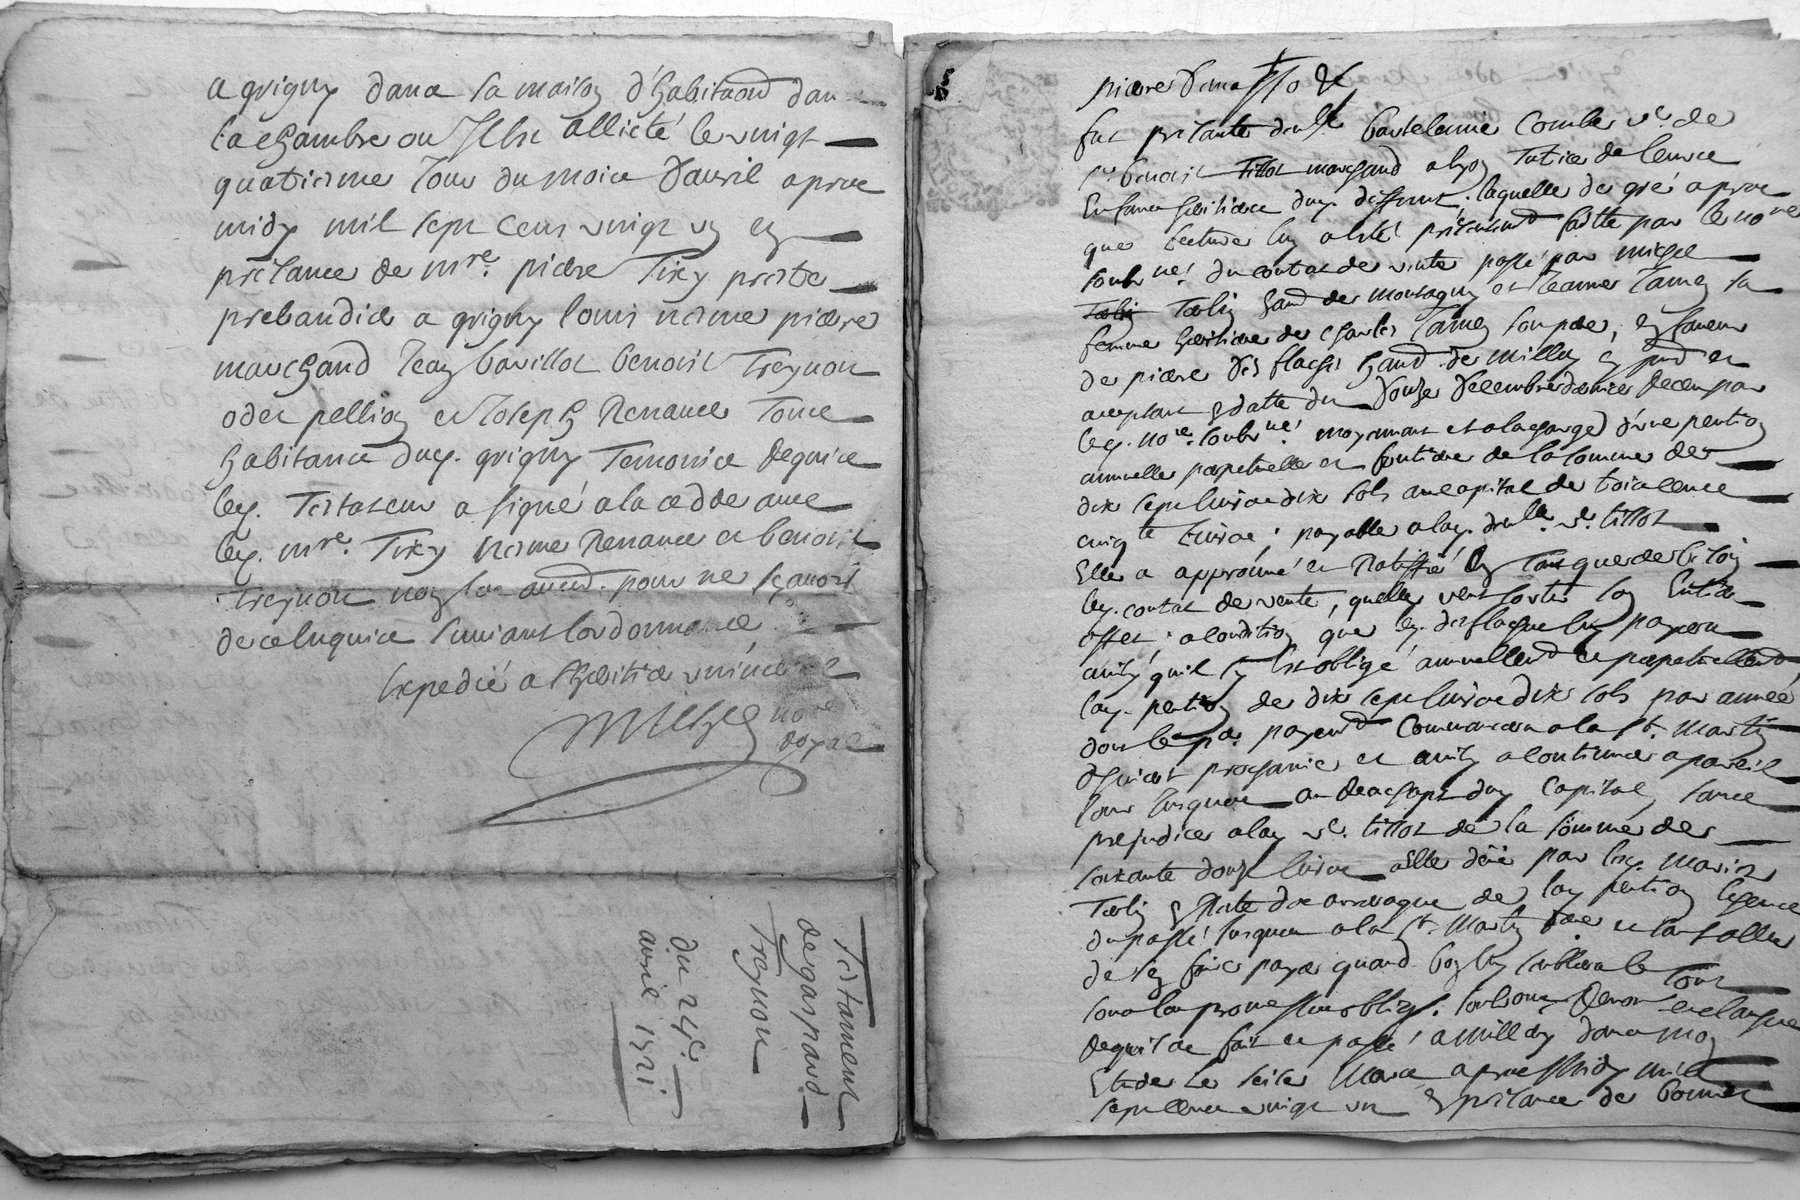 a grigny dans sa maison d'habitaôn dan
la chambre ou Il est allicté le vingt
quatriesme Jour du mois d'avril apres
midy mil sept cens vingt un en
presance de mre. pierre Tixy prestre
prebandier a grigny louis nesme pierre
marchand Jean bovillot benoist Treynon
odet pellion et Joseph Renance Tous
habitans dud. grigny Temoins Requis
led. Testateur a signé a la cedde avec
led. mre. Tixy nesme Renance et benoist
Treynon non les aues. pour ne sçavoir
de ce Enquis suivant lordonnance
Expedié a lheritier universel
nore
royal
Testament
de gaspard
Treynon
du 24e.
avril 1721
fut presante delle. bartelemie Combe ve. de
sr. benoist Tillot marchand a lyon Tutrice de leurs
Enfans heritiers dud. deffunt, laquelle de gré apres
que lecture luy a esté presentemt faitte par le nore
soubné. du contat de vente passé par
Toely habt de montagny et Jeanne Jamen sa
femme heritiere de charles Jamen son pere, en faveur
de pierre Des flaches habt de millery cy pnt et
acceptant En datte du Douze Decembre dernier Receu par
led. nore. soubné. moyennant et a la charge d'une pention
annuelle perpetuelle et fontiere de la somme de
dix sept livres dix sols au capital de trois cens
cinqte livres, payable a lad. delle. ve. tillot
Elle a approuvé et Ratiffié En Tout que de besoin
led. contat de vente, quelle veut sortir son Entier
effet, a condition que led. desflaches luy payera
ainsy quil sy Est obligé annuellemt et perpetuellemt
lad. pention de dix sept livres dix sols par année
dont le per. payemt Commancera a la st. Martin
prochaine et ainsy a continuer a pareil
Jour Jusques au Reachapt dud Capital, sans
prejudice a lad ve. tillot de la somme de
soixante douze livres a Elle deüe par led.
Toely En Reste des arrerages de lad pention
du passé Jusques a la st. Martin der. et sauf a Elle
de sen faire payer quand bon luy semblera le Tout
sous les promesses oblign. soubmons Renonon et clauses
Requises fait et passé a millery dans mon
Etude Le seize Mars apres Midy mil
sept cens vingt un En presance de